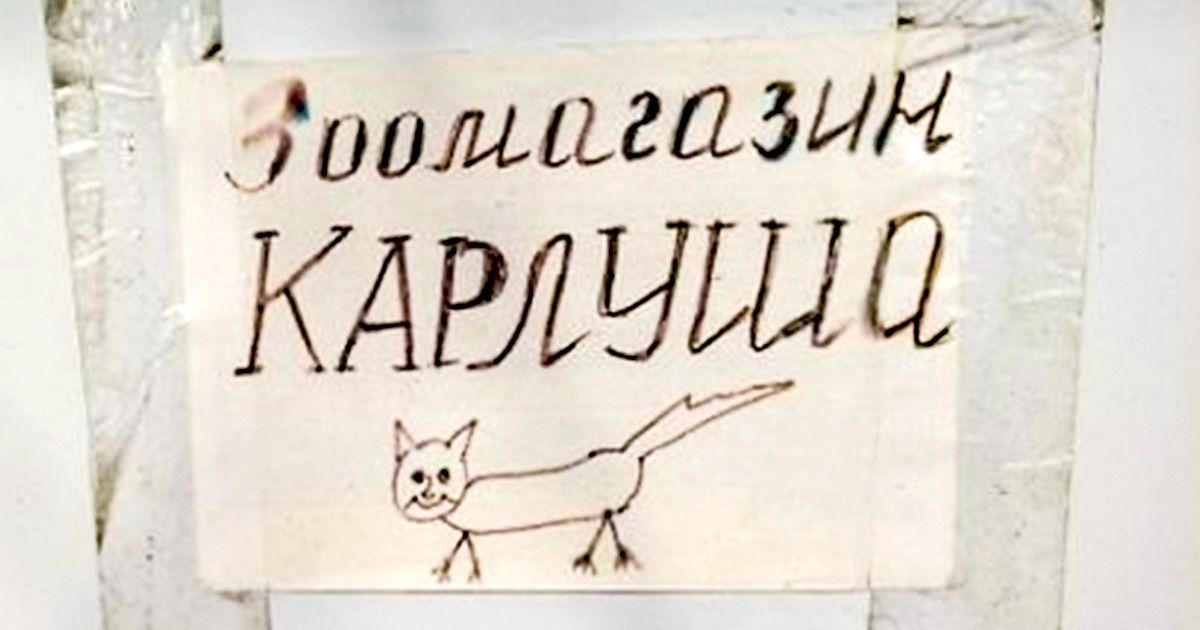 Зоомагазин
КАРЛУША